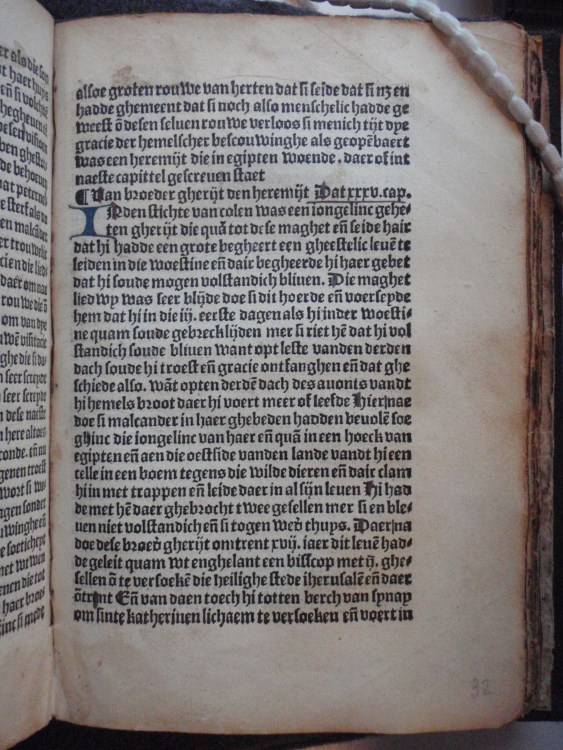 alsoe groten rouwe van herten dat si seide dat si nꝫ en
hadde ghemeent dat si noch also menschelic hadde ge
weest ē desen seluen rouwe verloos si menich tijt dye
gracie der hemelscher bescouwinghe als geopēbaert
was een heremijt die in egipten woende. daer of int
naeste capittel gescreuen staet
¶ Uan broeder gherijt den heremijt Dat xxxv. cap.
INden stichte van colen was een iongelinc gehe
ten gherijt die quā tot dese maghet eñ seide hair
dat hi hadde een grote begheert een gheestelic leuē te
leiden in die woestine eñ dair begheerde hi haer gebet
dat hi soude mogen volstandich bliuen. Die maghet
liedwy was seer blijde doe si dit hoerde eñ voerseyde
hem dat hi in die iij. eerste dagen als hi inder woesti
ne quam soude gebreck lijden mer si riet hē dat hi vol
standich soude bliuen want opt leste vanden derden
dach soude hi troest eñ gracie ontfanghen eñ dat ghe
schiede also. wāt opten derdē dach des auonts vandt
hi hemels broot daer hi voert meer of leefde Hier nae
doe si malcander in haer ghebeden hadden beuolē soe
ghinc die iongelinc van haer eñ quā in een hoeck van
egipten eñ aen die oestside vanden lande vandt hi een
celle in een boem tegens die wilde dieren eñ dair clam
hi in met trappen eñ leide daer in al sijn leuen Hi had
de met hē daer ghebrocht twee gesellen mer si en ble⸗
uen niet volstandich eñ si togen weď thuys. Daer na
doe dese broeď gherijt omtrent xvij. iaer dit leuē had⸗
de geleit quam wt enghelant een bisscop met ij. ghe⸗
sellen ō te versoekē die heilighe stede iherusalē eñ daer
ōtrint Eñ van daen toech hi totten berch van synay
om sinte katherinen lichaem te versoeken eñ voert in
32